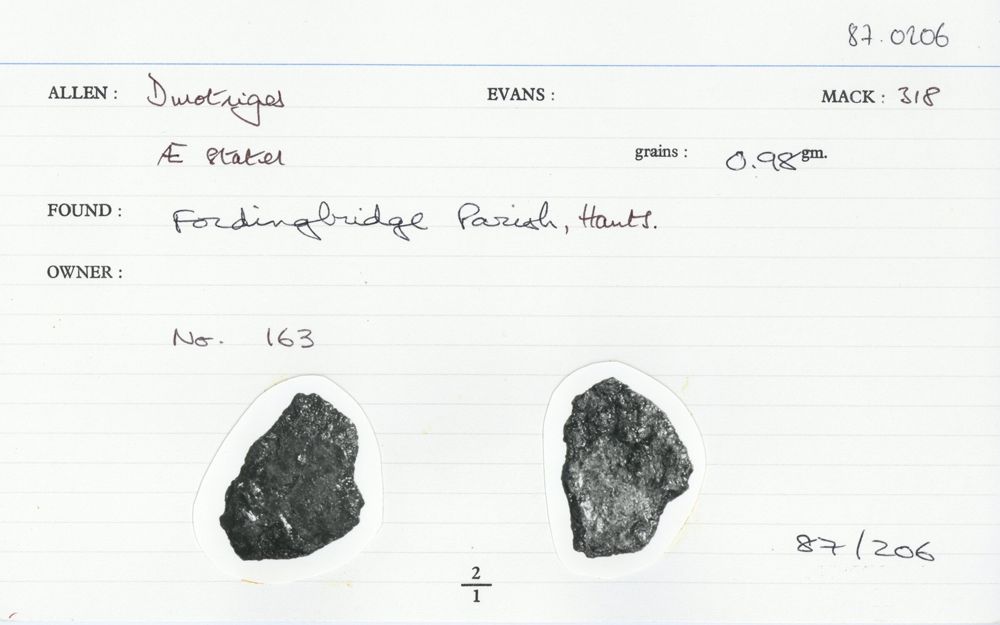 87.0206
ALLEN : Durotriges EVANS : MACK : 318
Æ stater grains : 0.98 gm.
FOUND : Fordingbridge Parish, Hants.
OWNER :
No. 163
87/206
2
1